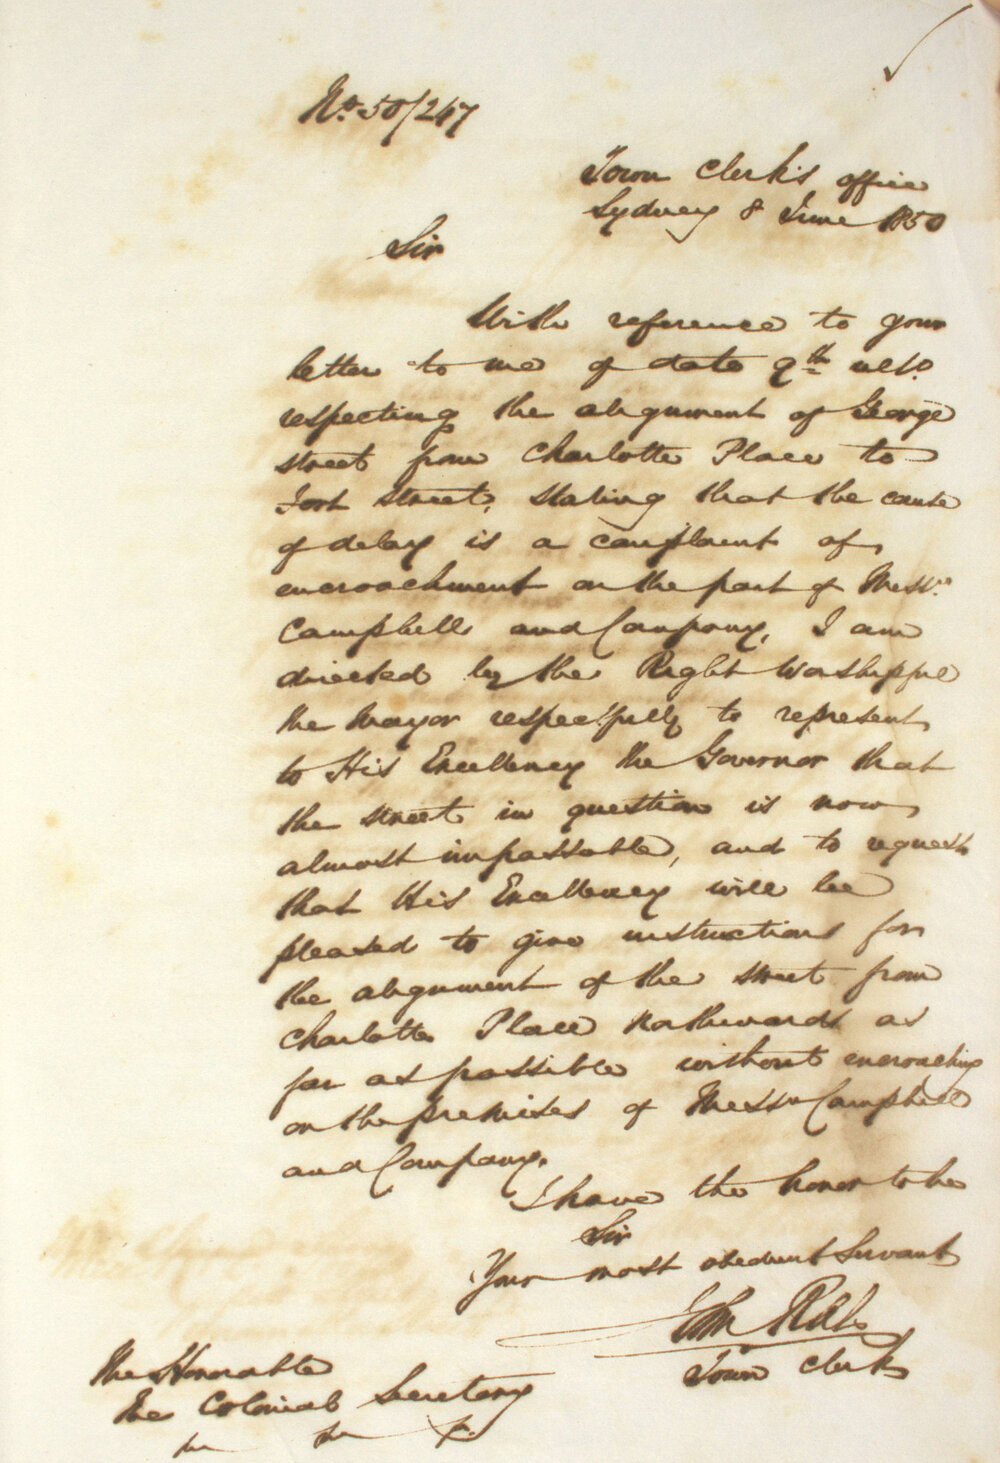 No. 50/247
Town Clerk's office
Sydney 8 June 1850
Sir
With reference to your
letter to me of date 9th ulto.
respecting the alignment of George
street from Charlotte Place to
Fort Street, stating that the cause
of delay is a complaint of
encroachment on the part of Messrs.
Campbell and Company, I am
directed by the Right Worshipful
the Mayor respectfully to represent
to His Excellency the Governor that
the street in question is now
almost impassable, and to request
that His Excellency will be
pleased to give instructions for
the alignment of the street from
Charlotte Place Northwards as
far as possible without encroaching
on the premises of Messrs Campbell
and Company.
I have the honor to be
Sir
Your most obedient Servant
John
Town Clerk
The Honorable
The Colonial Secretary